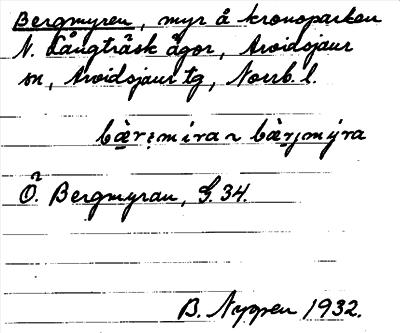 Bergmyren, myr å kronoparken
N. Långträsk ägor, Arvidsjaur
sn, Arvidsjaur tg, Norrb. l.
bæ̀rjmira ~ bæ̀rjmýra
Ö. Bergmyran, G. 34.
B. Nygren 1932.